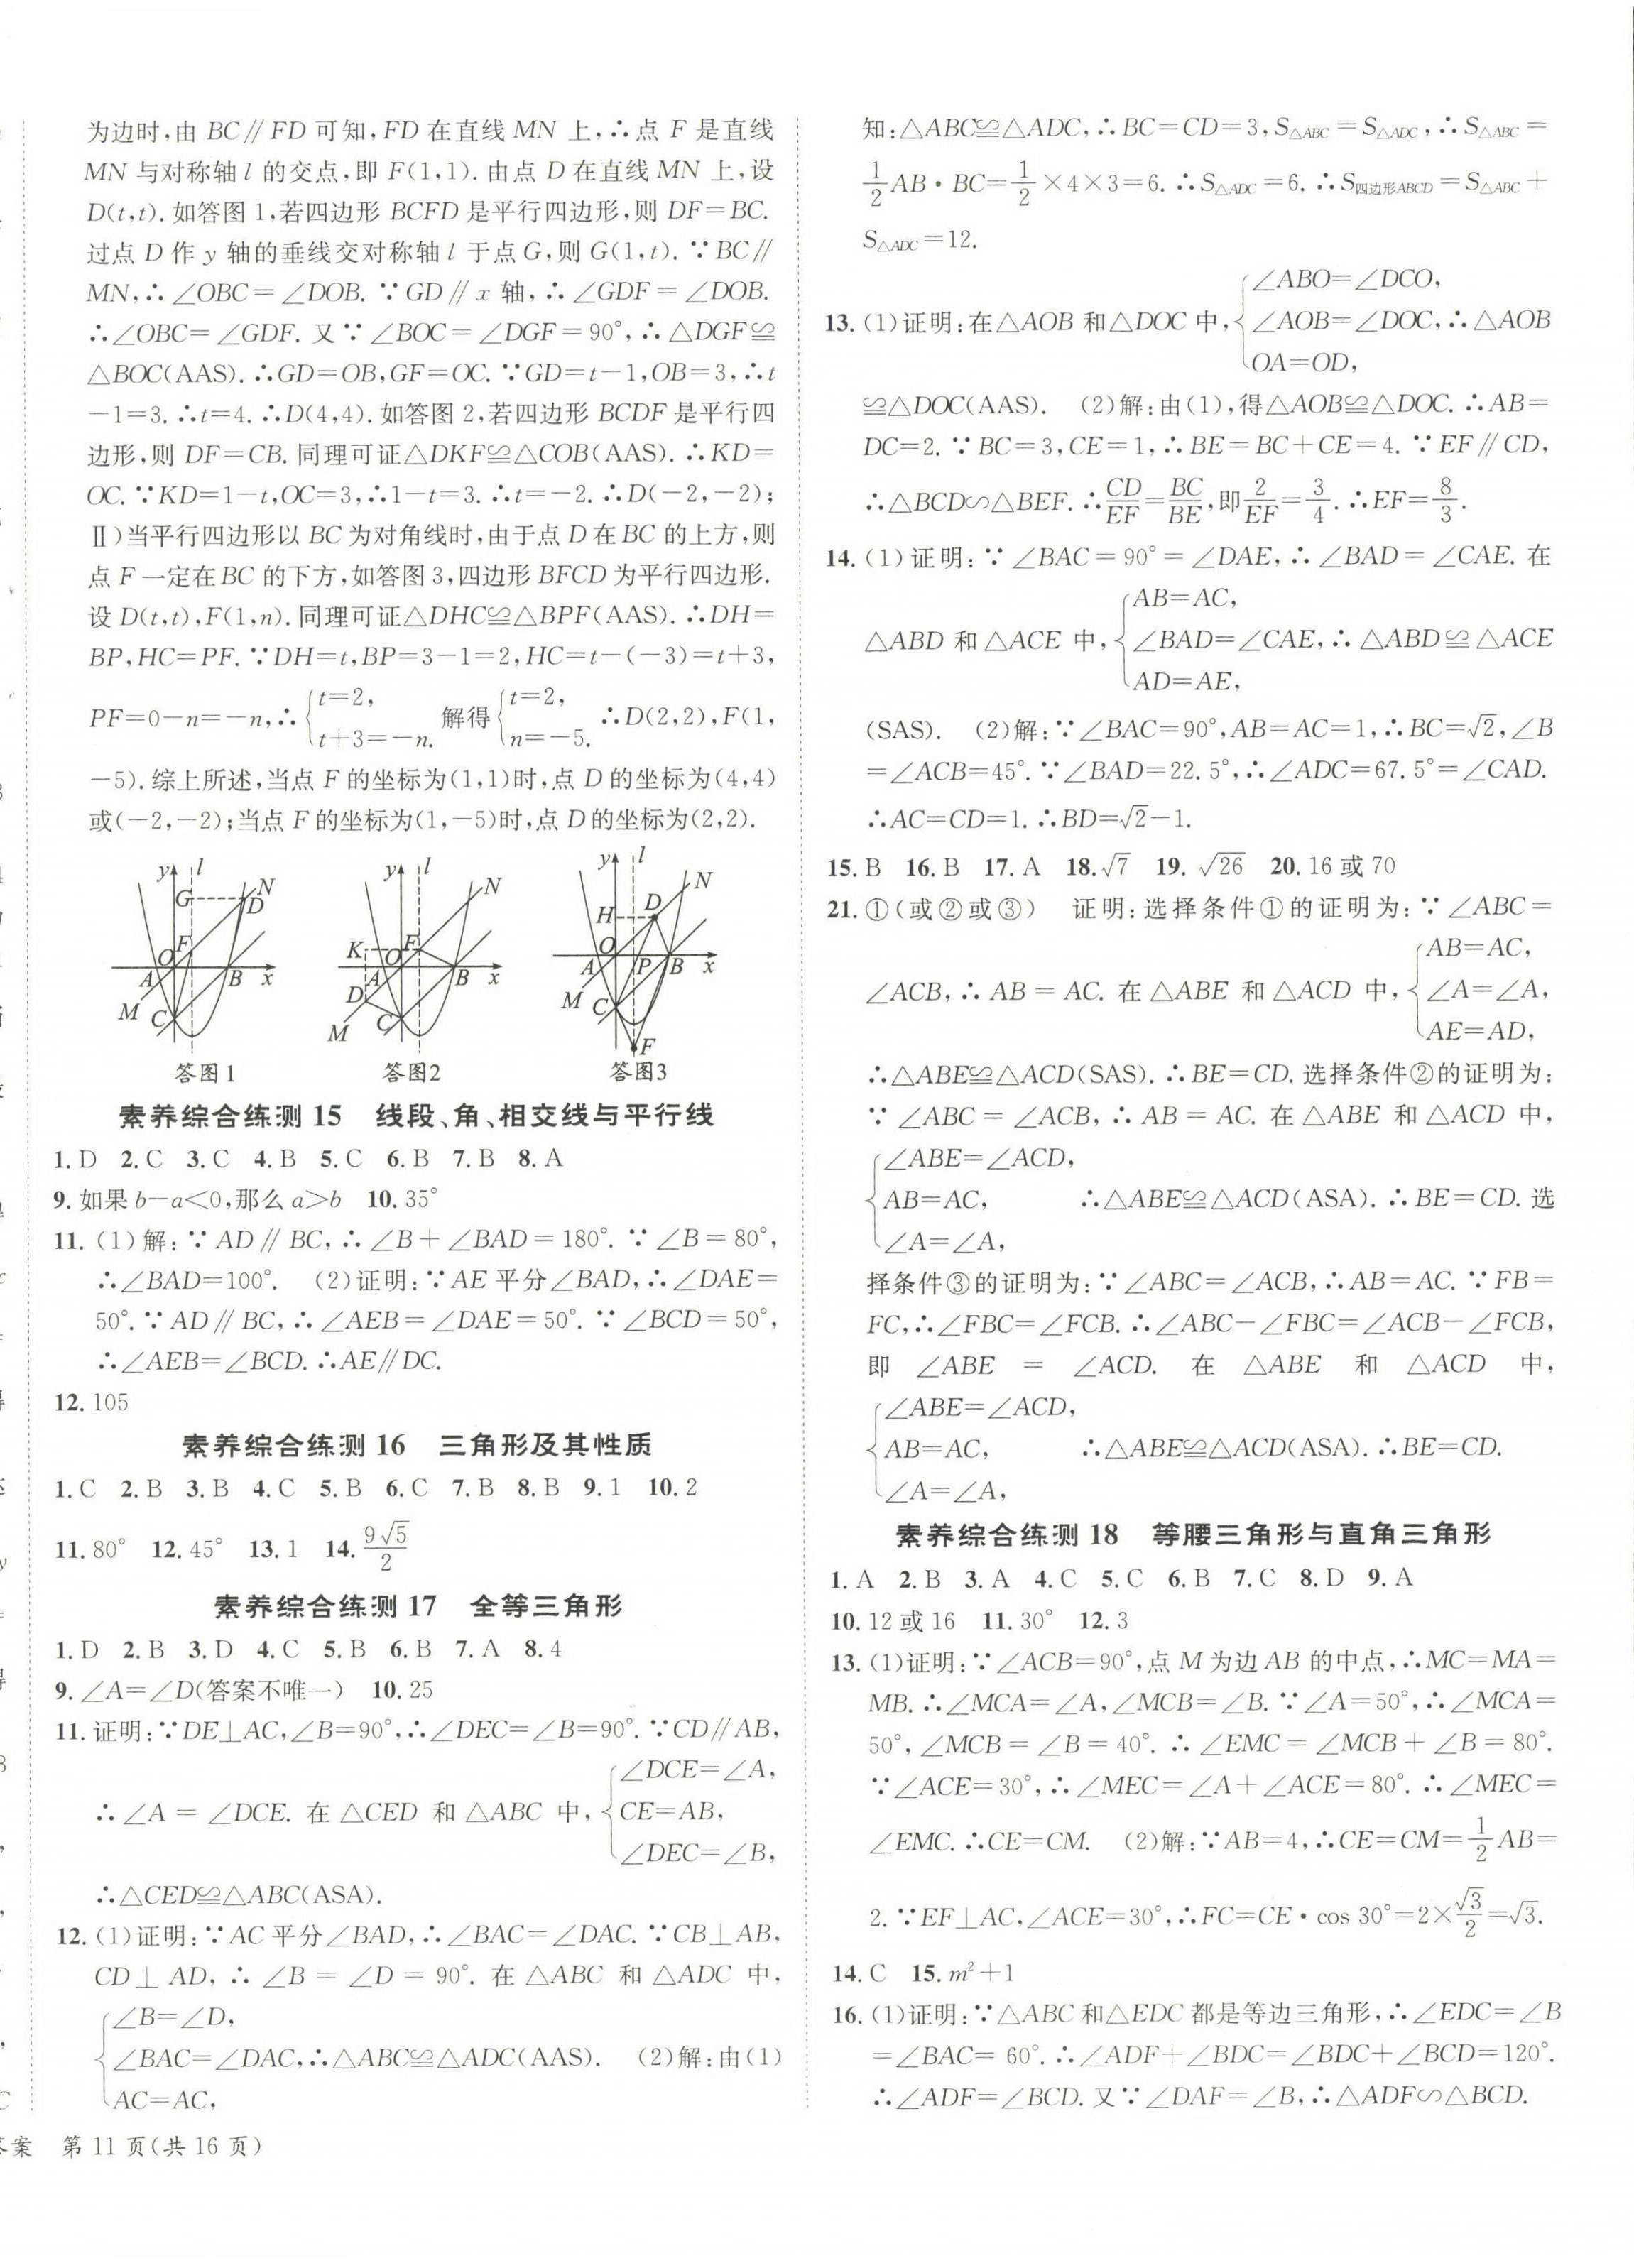 为边时,由 BC∥FD 可知,FD 在直线 MN 上,∴点 F 是直线
MN 与对称轴 l 的交点,即 F(1,1).由点 D 在直线 MN 上,设
D(t,t).如答图 1,若四边形 BCFD 是平行四边形,则 DF=BC.
过点 D 作 y 轴的垂线交对称轴 l 于点 G,则 G(1,t).∵BC∥
MN,∴∠OBC=∠DOB.∵GD∥x 轴,∴∠GDF=∠DOB.
∴∠OBC=∠GDF.又∵∠BOC=∠DGF=90°,∴△DGF≌
△BOC(AAS).∴GD=OB,GF=OC.∵GD=t-1,OB=3,∴t
-1=3.∴t=4.∴D(4,4).如答图 2,若四边形 BCDF 是平行四
边形,则 DF=CB.同理可证△DKF≌△COB(AAS).∴KD=
OC.∵KD=1-t,OC=3,∴1-t=3.∴t=-2.∴D(-2,-2);
Ⅱ)当平行四边形以 BC 为对角线时,由于点 D 在 BC 的上方,则
点 F 一定在 BC 的下方,如答图 3,四边形 BFCD 为平行四边形.
设 D(t,t),F(1,n).同理可证△DHC≌△BPF(AAS).∴DH=
BP,HC=PF.∵DH=t,BP=3-1=2,HC=t-(-3)=t+3,
PF=0-n=-n,∴{t=2, t+3=-n. 解得{t=2, n=-5. ∴D(2,2),F(1,
-5).综上所述,当点 F 的坐标为(1,1)时,点 D 的坐标为(4,4)
或(-2,-2);当点 F 的坐标为(1,-5)时,点 D 的坐标为(2,2).
y l G N D F O A B x M C
y l N K F O A B x D M C
y l N D H O A P B x M C F
答图 1 答图2 答图3
素养综合练测 15 线段、角、相交线与平行线
1. D 2. C 3. C 4. B 5. C 6. B 7. B 8. A
9. 如果 b-a<0,那么 a>b 10. 35°
11. (1)解:∵AD∥BC,∴∠B+∠BAD=180°.∵∠B=80°,
∴∠BAD=100°. (2)证明:∵AE 平分∠BAD,∴∠DAE=
50°.∵AD∥BC,∴∠AEB=∠DAE=50°.∵∠BCD=50°,
∴∠AEB=∠BCD.∴AE∥DC.
12. 105
素养综合练测 16 三角形及其性质
1. C 2. B 3. B 4. C 5. B 6. C 7. B 8. B 9. 1 10. 2
11. 80° 12. 45° 13. 1 14. 9√5/2
素养综合练测 17 全等三角形
1. D 2. B 3. D 4. C 5. B 6. B 7. A 8. 4
9. ∠A=∠D(答案不唯一) 10. 25
11. 证明:∵DE⊥AC,∠B=90°,∴∠DEC=∠B=90°.∵CD∥AB,
∴∠A=∠DCE. 在△CED 和△ABC 中,{∠DCE=∠A, CE=AB, ∠DEC=∠B,
∴△CED≌△ABC(ASA).
12. (1)证明:∵AC 平分∠BAD,∴∠BAC=∠DAC.∵CB⊥AB,
CD⊥AD,∴∠B=∠D=90°. 在△ABC 和△ADC 中,
{∠B=∠D,
∠BAC=∠DAC,∴△ABC≌△ADC(AAS). (2)解:由(1)
AC=AC,
答案 第 11 页(共 16 页)
知:△ABC≌△ADC,∴BC=CD=3,S△ABC=S△ADC,∴S△ABC=
1/2 AB·BC=1/2×4×3=6.∴S△ADC=6.∴S四边形ABCD=S△ABC+
S△ADC=12.
13. (1)证明:在△AOB 和△DOC 中,{∠ABO=∠DCO, ∠AOB=∠DOC, OA=OD, ∴△AOB
≌△DOC(AAS). (2)解:由(1),得△AOB≌△DOC.∴AB=
DC=2.∵BC=3,CE=1,∴BE=BC+CE=4.∵EF∥CD,
∴△BCD∽△BEF.∴CD/EF=BC/BE,即2/EF=3/4.∴EF=8/3.
14. (1)证明:∵∠BAC=90°=∠DAE,∴∠BAD=∠CAE. 在
△ABD 和△ACE 中,{AB=AC, ∠BAD=∠CAE, AD=AE, ∴△ABD≌△ACE
(SAS). (2)解:∵∠BAC=90°,AB=AC=1,∴BC=√2,∠B
=∠ACB=45°.∵∠BAD=22.5°,∴∠ADC=67.5°=∠CAD.
∴AC=CD=1.∴BD=√2-1.
15. B 16. B 17. A 18. √7 19. √26 20. 16 或 70
21. ①(或②或③) 证明:选择条件①的证明为:∵∠ABC=
∠ACB,∴AB=AC. 在△ABE 和△ACD 中,{AB=AC, ∠A=∠A, AE=AD,
∴△ABE≌△ACD(SAS).∴BE=CD. 选择条件②的证明为:
∵∠ABC=∠ACB,∴AB=AC. 在△ABE 和△ACD 中,
{∠ABE=∠ACD,
AB=AC, ∴△ABE≌△ACD(ASA).∴BE=CD. 选
∠A=∠A,
择条件③的证明为:∵∠ABC=∠ACB,∴AB=AC.∵FB=
FC,∴∠FBC=∠FCB.∴∠ABC-∠FBC=∠ACB-∠FCB,
即 ∠ABE = ∠ACD. 在 △ABE 和 △ACD 中,
{∠ABE=∠ACD,
AB=AC, ∴△ABE≌△ACD(ASA).∴BE=CD.
∠A=∠A,
素养综合练测 18 等腰三角形与直角三角形
1. A 2. B 3. A 4. C 5. C 6. B 7. C 8. D 9. A
10. 12 或 16 11. 30° 12. 3
13. (1)证明:∵∠ACB=90°,点 M 为边 AB 的中点,∴MC=MA=
MB.∴∠MCA=∠A,∠MCB=∠B.∵∠A=50°,∴∠MCA=
50°,∠MCB=∠B=40°.∴∠EMC=∠MCB+∠B=80°.
∵∠ACE=30°,∴∠MEC=∠A+∠ACE=80°.∴∠MEC=
∠EMC.∴CE=CM. (2)解:∵AB=4,∴CE=CM=1/2 AB=
2.∵EF⊥AC,∠ACE=30°,∴FC=CE·cos 30°=2×√3/2=√3.
14. C 15. m²+1
16. (1)证明:∵△ABC 和△EDC 都是等边三角形,∴∠EDC=∠B
=∠BAC=60°.∴∠ADF+∠BDC=∠BDC+∠BCD=120°.
∴∠ADF=∠BCD. 又∵∠DAF=∠B,∴△ADF∽△BCD.